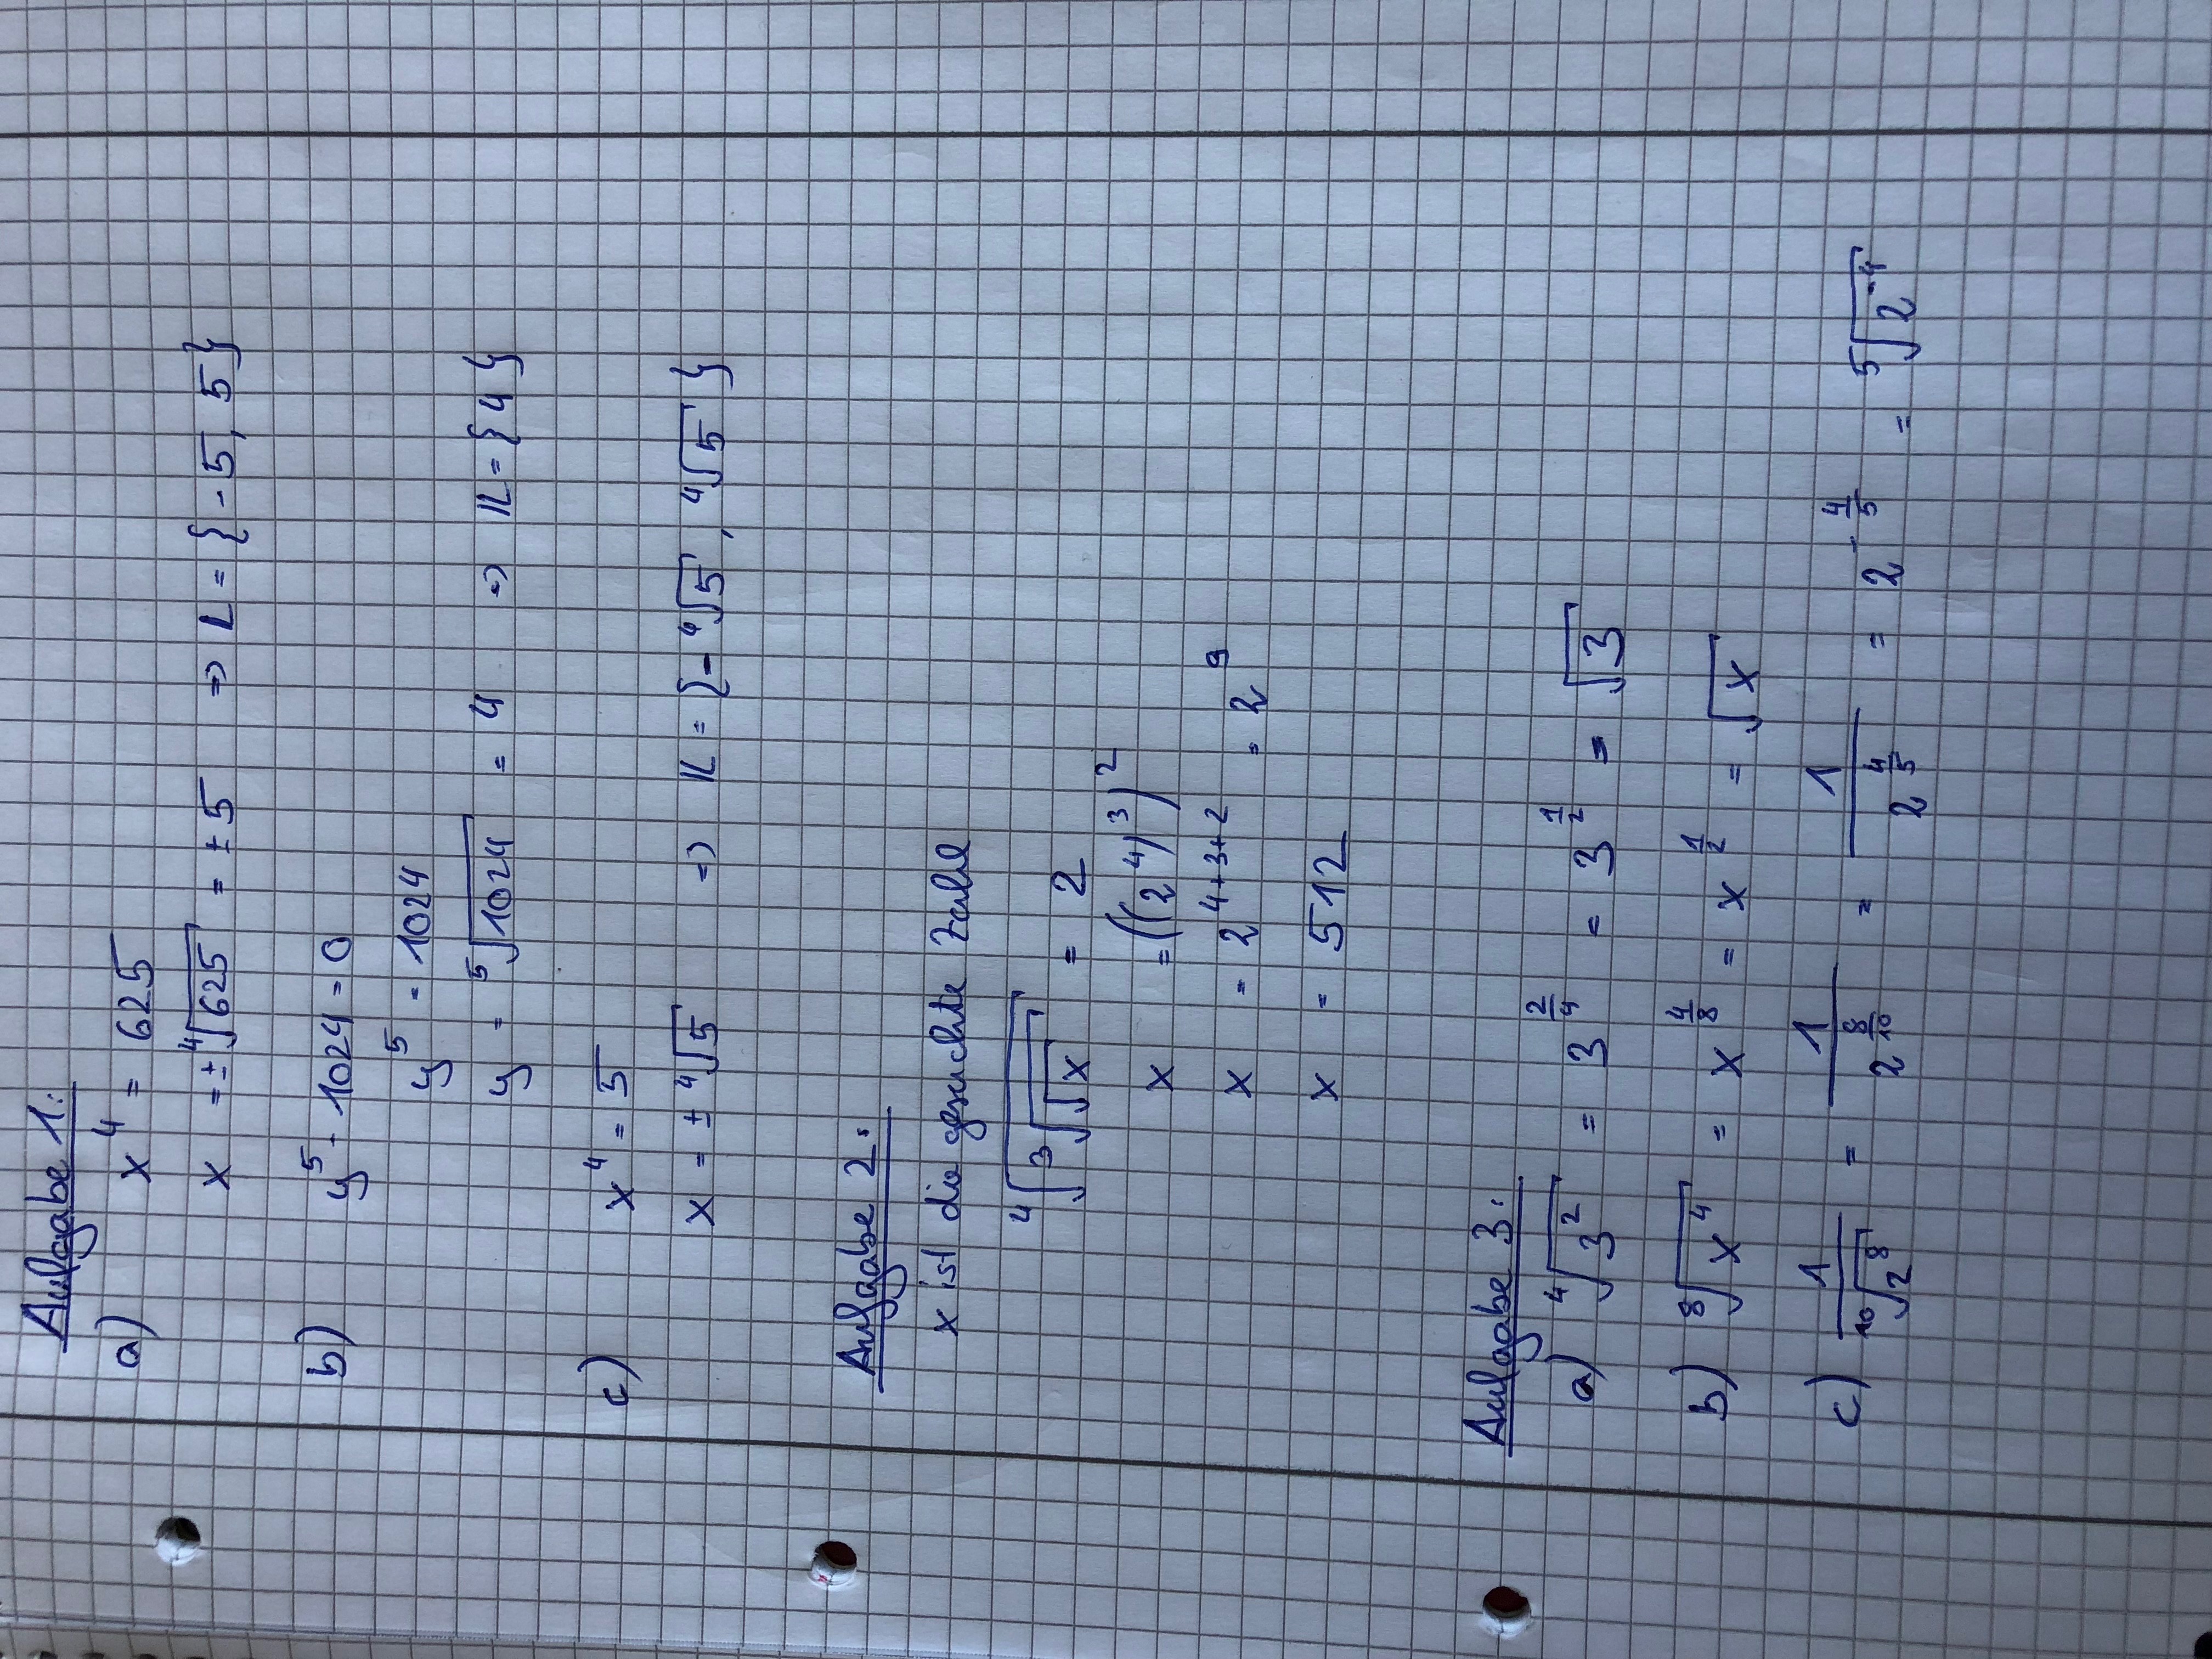 Aufgabe 1:
a) x⁴ = 625
x = ± ⁴√625 = ± 5 ⇒ L = { -5, 5 }
b) y⁵ - 1024 = 0
y⁵ = 1024
y = ⁵√1024 = 4 ⇒ 𝕃 = { 4 }
c) x⁴ = 5
x = ± ⁴√5 ⇒ 𝕃 = { - ⁴√5 , ⁴√5 }
Aufgabe 2:
x ist die gesuchte Zahl
⁴√(³√(√x)) = 2
x = ((2⁴)³)²
x = 2^(4+3+2) = 2⁹
x = 512
Aufgabe 3:
a) ⁴√(3²) = 3^(2/4) = 3^(1/2) = √3
b) ⁸√(x⁴) = x^(4/8) = x^(1/2) = √x
c) 1/(¹⁰√(2⁸)) = 1/(2^(8/10)) = 1/(2^(4/5)) = 2^(-4/5) = ⁵√(2⁻⁴)